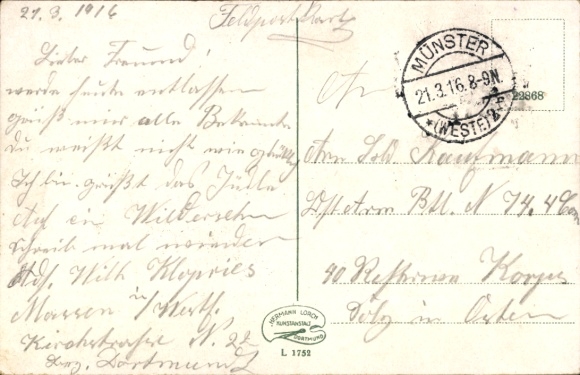 21.3.1916
Feldpostkarte
Lieber Freund!
werde heute entlassen
grüß mir alle Bekannte
du weißt nicht wie glückl
Ich bin. grüßt das
Auf ein Wiedersehn
schreib mal wieder
Wilh Klopries
Massen i/ Westf.
Kirchstraße N. 22
Bez. Dortmund
MÜNSTER
21.3.16.8-9N.
*(WESTF)2*
22868
An
Kaufmann
Btl. N 74. 4 Co
40 Korps
in Osten
HERMANN LORCH
KUNSTANSTALT
DORTMUND
L 1752